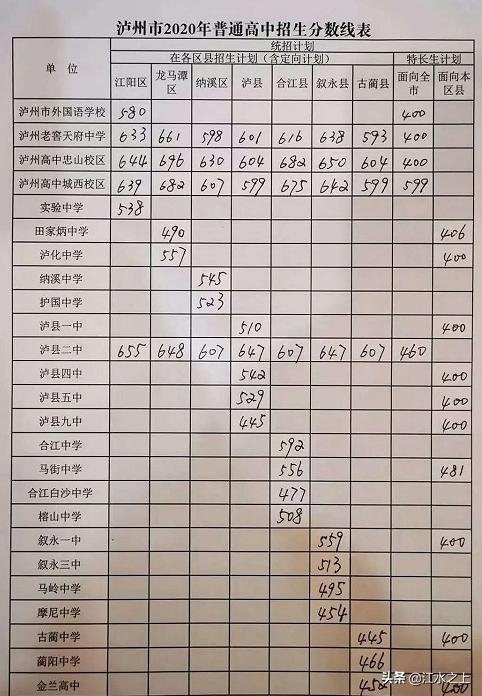 泸州市2020年普通高中招生分数线表
单 位 统招计划 特长生计划
在各区县招生计划(含定向计划)
江阳区 龙马潭区 纳溪区 泸县 合江县 叙永县 古蔺县 面向全市 面向本区县
泸州市外国语学校 580 400
泸州老窖天府中学 633 661 598 601 616 638 593 400
泸州高中忠山校区 644 696 630 604 682 650 604 400
泸州高中城西校区 639 682 607 599 675 642 599 599
实验中学 538
田家炳中学 490 406
泸化中学 557 400
纳溪中学 545
护国中学 523
泸县一中 510 400
泸县二中 655 648 607 647 607 647 607 460
泸县四中 542 400
泸县五中 529 400
泸县九中 445 400
合江中学 592
马街中学 556 481
合江白沙中学 477
榕山中学 508
叙永一中 559 400
叙永三中 513
马岭中学 495
摩尼中学 454
古蔺中学 445 400
蔺阳中学 466
金兰高中 452 400
头条 @江水之上